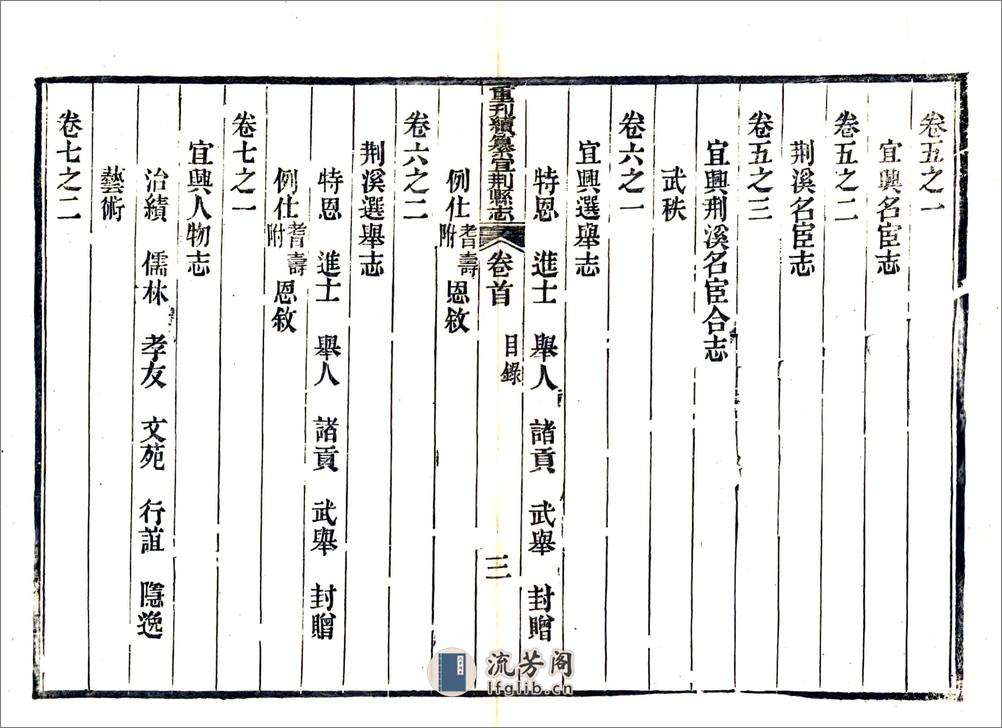 卷五之一
宜興名宦志
卷五之二
荆溪名宦志
卷五之三
宜興荆溪名宦合志
武秩
卷六之一
宜興選舉志
特恩 進士 舉人 諸貢 武舉 封贈
例仕 耆壽附 恩敘
重刋續纂宜荆縣志 卷首 目錄 三
卷六之二
荆溪選舉志
特恩 進士 舉人 諸貢 武舉 封贈
例仕 耆壽附 恩敘
卷七之一
宜興人物志
治績 儒林 孝友 文苑 行誼 隱逸
藝術
卷七之二
流芳阁
lfglib.cn